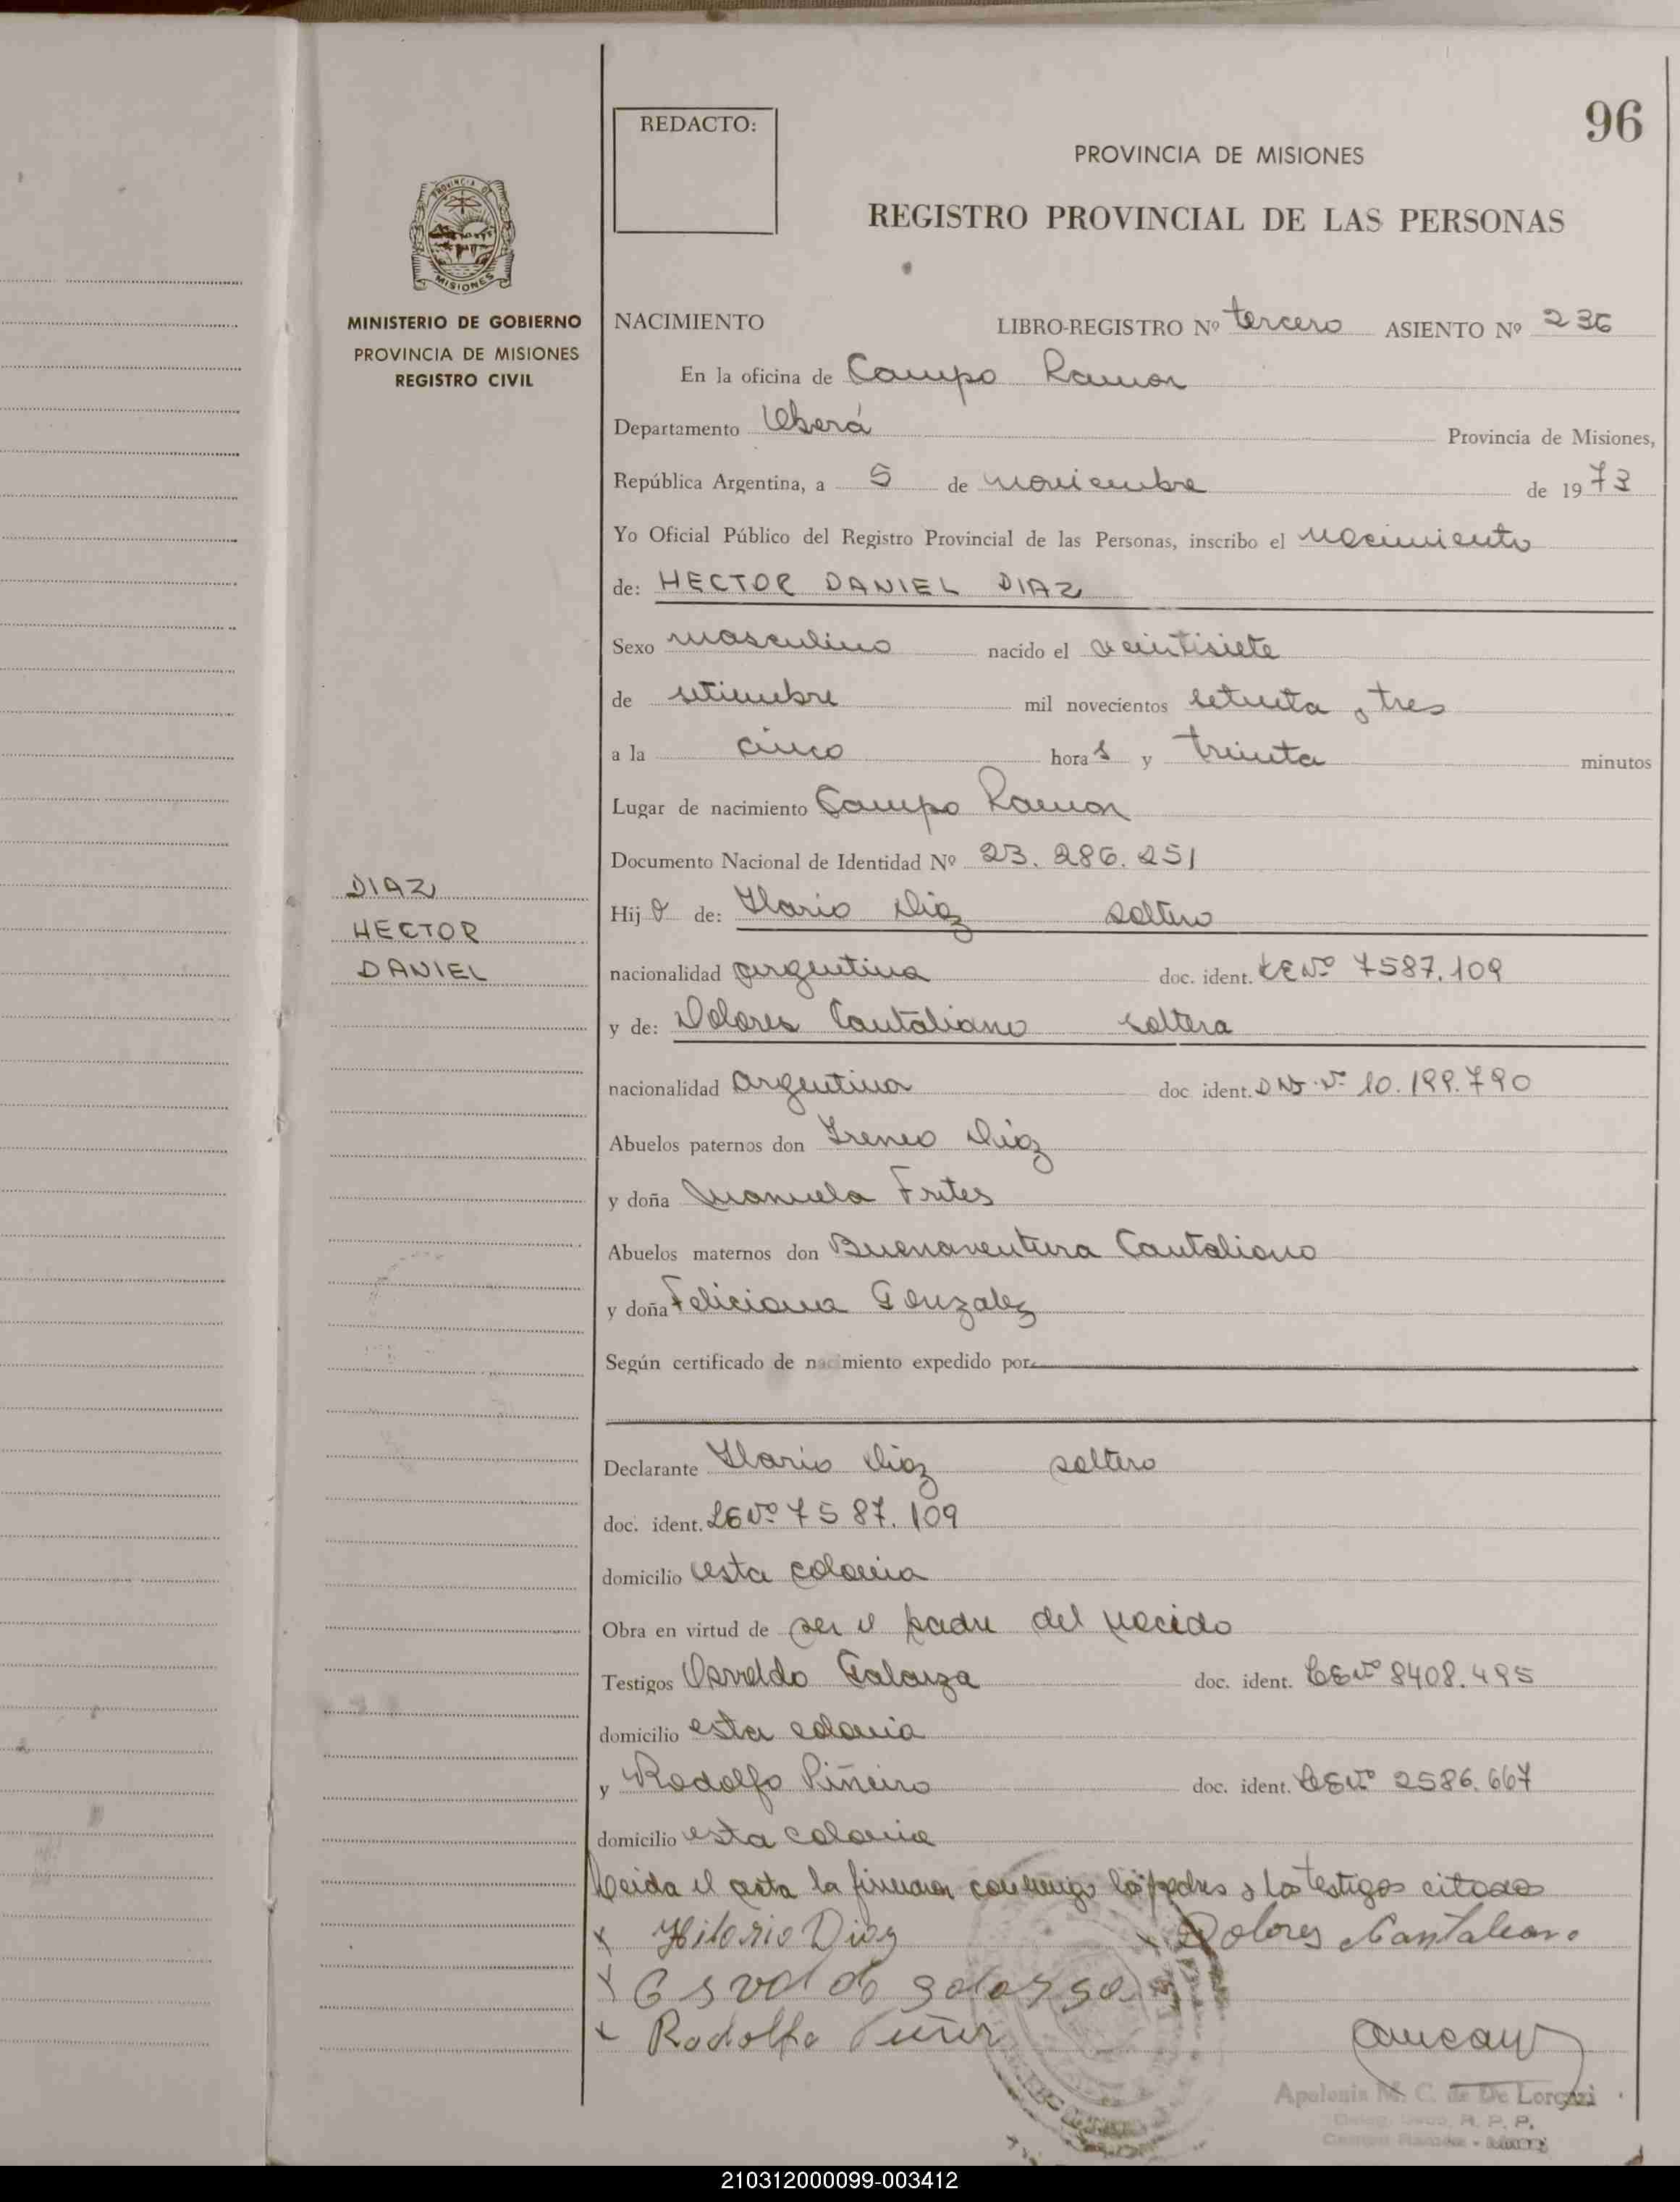 96
REDACTO:
PROVINCIA DE MISIONES
REGISTRO PROVINCIAL DE LAS PERSONAS
PROVINCIA DE
MISIONES
MINISTERIO DE GOBIERNO
PROVINCIA DE MISIONES
REGISTRO CIVIL
NACIMIENTO LIBRO-REGISTRO Nº tercero ASIENTO Nº 236
En la oficina de Campo Ramon
Departamento Oberá Provincia de Misiones,
República Argentina, a 5 de noviembre de 1973
Yo Oficial Público del Registro Provincial de las Personas, inscribo el nacimiento
de: HECTOR DANIEL DIAZ
Sexo masculino nacido el veintisiete
de setiembre mil novecientos setenta y tres
a la cinco horas y treinta minutos
Lugar de nacimiento Campo Ramon
Documento Nacional de Identidad Nº 23.286.251
DIAZ
HECTOR
DANIEL
Hijo de: Ilario Diaz soltero
nacionalidad argentina doc. ident. LE Nº 7587.109
y de: Dolores Cantaliano soltera
nacionalidad argentina doc ident. DNI Nº 10.199.790
Abuelos paternos don Ireneo Diaz
y doña Manuela Frutes
Abuelos maternos don Buenaventura Cantaliano
y doña Feliciana Gonzalez
Según certificado de nacimiento expedido por
Declarante Ilario Diaz soltero
doc. ident. LE Nº 7587.109
domicilio esta colonia
Obra en virtud de ser el padre del nacido
Testigos Osvaldo Galarza doc. ident. LE Nº 8408.495
domicilio esta colonia
y Rodolfo Piñeiro doc. ident. LE Nº 2586.667
domicilio esta colonia
Leida el acta la firman conmigo los padres y los testigos citados
x Hilario Diaz x Dolores Cantaliano
x Osvaldo galarza
x Rodolfo
Apolonia M. C. de De Lorenzi
R. P. P.
Campo Ramón - Mnes
210312000099-003412